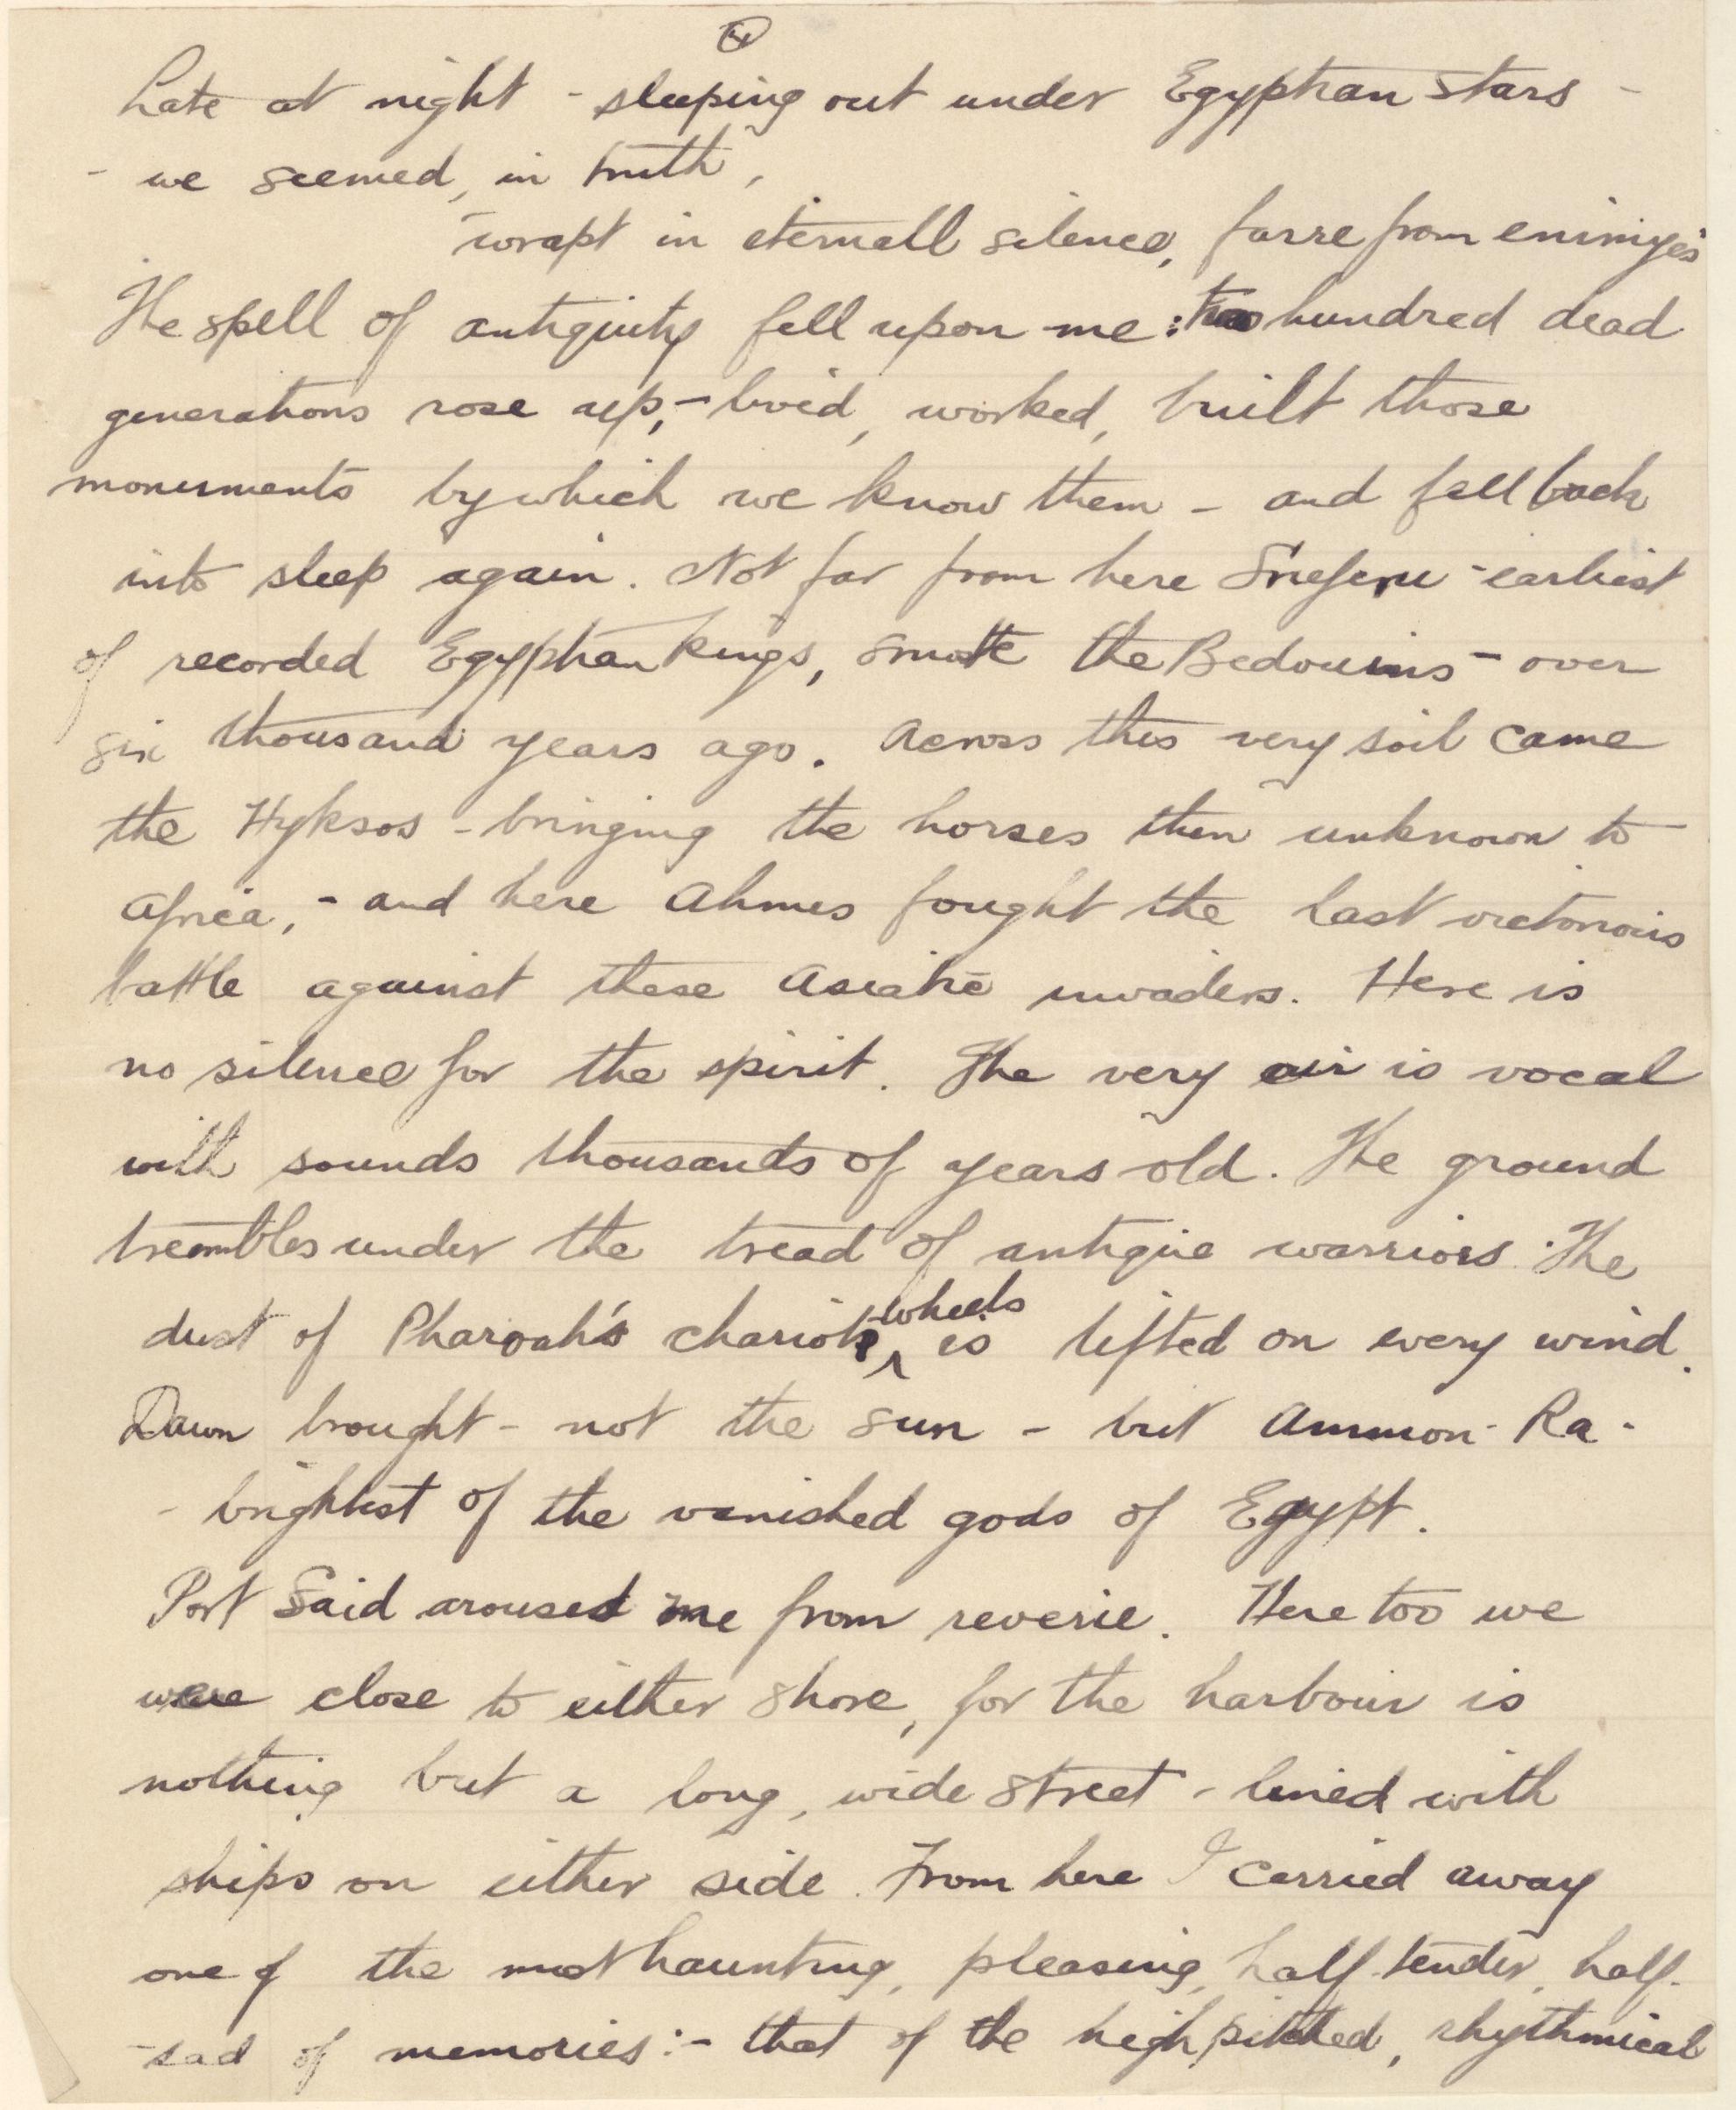 4
Late at night - sleeping out under Egyptian stars -
- we seemed, in truth,
wrapt in eternall silence, farre from enimyes
The spell of antiquity fell upon me: two hundred dead
generations rose up, - lived, worked, built those
monuments by which we know them - and fell back
into sleep again. Not far from here Sneferu - earliest
of recorded Egyptian Kings, smote the Bedouins - over
six thousand years ago. Across this very soil came
the Hyksos - bringing the horses then unknown to
Africa, - and here Ahmes fought the last victorious
battle against these Asiatic invaders. Here is
no silence for the spirit. The very air is vocal
with sounds thousands of years old. The ground
trembles under the tread of antique warriors. The
dust of Pharoah's chariot wheels is lifted on every wind.
Dawn brought - not the sun - but Ammon-Ra -
- brightest of the vanished gods of Egypt.
Port Said aroused me from reverie. Here too we
were close to either shore, for the harbour is
nothing but a long, wide street - lined with
ships on either side. From here I carried away
one of the most haunting, pleasing, half-tender, half-
-sad of memories: - that of the high pitched, rhythmical